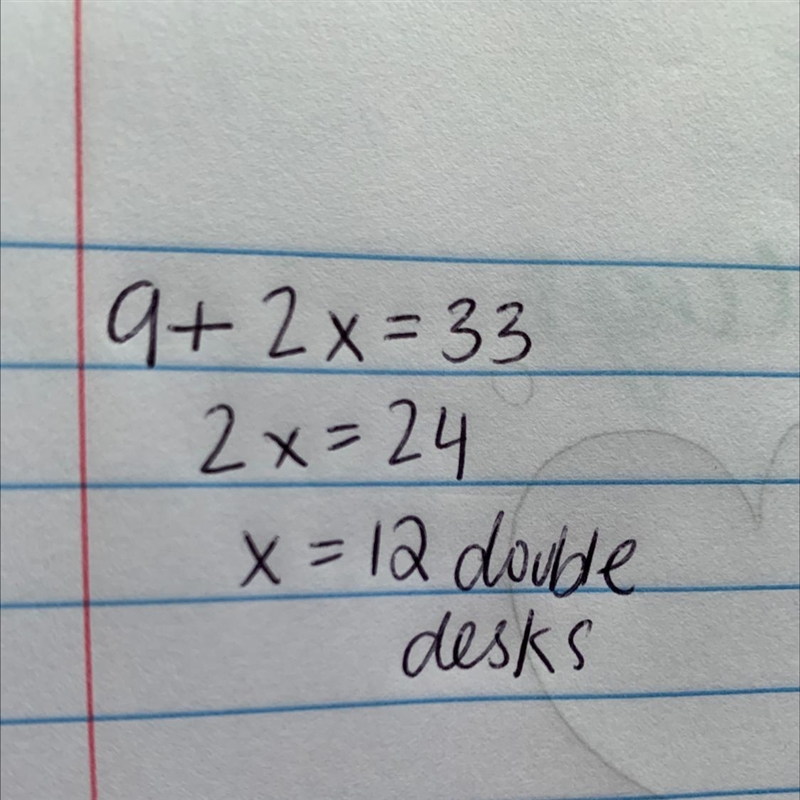 9+ 2x=33
2x=24
x=12 double
desks